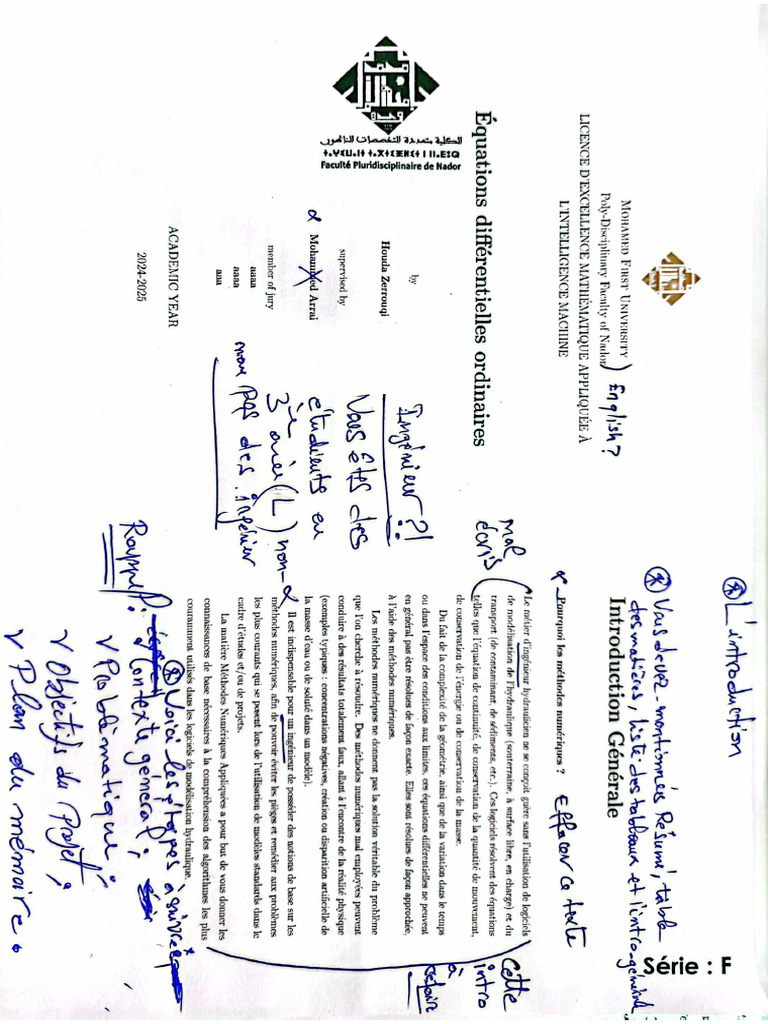 MOHAMED FIRST UNIVERSITY
Poly-Disciplinary Faculty of Nador
English?
LICENCE D'EXCELLENCE MATHÉMATIQUE APPLIQUÉE À
L'INTELLIGENCE MACHINE
Équations différentielles ordinaires
الكلية متعددة التخصصات الناظور
Faculté Pluridisciplinaire de Nador
by
Houda Zerrouqi
supervised by
Mohammed Arrai
member of jury
aaaa
aaaa
aaa
ACADEMIC YEAR
2024-2025
Ingénieur?!
Vous êtes des
étudients en
3 ère année (L)
non pas des ingénier
L'introduction
Vous devez montionnées Résumé, table
des matières, liste des tableaux et l'intro-général
Introduction Générale
Série : F
Pourquoi les méthodes numériques ?
Effacer ce texte
mal
écris
Le métier d'ingénieur hydraulicien ne se conçoit guère sans l'utilisation de logiciels
de modélisation de l'hydraulique (souterraine, à surface libre, en charge) et du
transport (de contaminant, de sédiments, etc.). Ces logiciels résolvent des équations
telles que l'équation de continuité, de conservation de la quantité de mouvement,
de conservation de l'énergie ou de conservation de la masse.
Du fait de la complexité de la géométrie, ainsi que de la variation dans le temps
ou dans l'espace des conditions aux limites, ces équations différentielles ne peuvent
en général pas être résolues de façon exacte. Elles sont résolues de façon approchée,
à l'aide des méthodes numériques.
Les méthodes numériques ne donnent pas la solution véritable du problème
que l'on cherche à résoudre. Des méthodes numériques mal employées peuvent
conduire à des résultats totalement faux, allant à l'encontre de la réalité physique
(exemples typiques : concentrations négatives, création ou disparition artificielle de
la masse d'eau ou de soluté dans un modèle).
non
Il est indispensable pour un ingénieur de posséder des notions de base sur les
méthodes numériques, afin de pouvoir éviter les pièges et remédier aux problèmes
les plus courants qui se posent lors de l'utilisation de modèles standards dans le
cadre d'études et/ou de projets.
La matière Méthodes Numériques Appliquées a pour but de vous donner les
connaissances de base nécessaires à la compréhension des algorithmes les plus
couramment utilisés dans les logiciels de modélisation hydraulique.
Cette
intro
à
refaire
Voici les étapes à suivre
Rappel :
Contexte général ;
Problèmatique ;
Objectifs du Projet ;
Plan du mémoire.